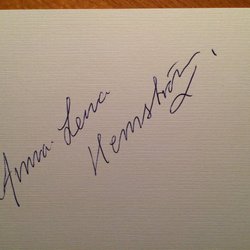 Anna-Lena
Hemström